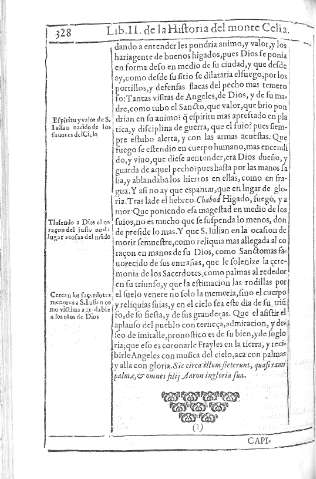 328
Lib. II. de la Historia del monte Celia.
dando a entender les pondria animo, y valor, y los
hariagente de buenos higados, pues Dios se ponia
en forma deso en medio de su ciudad, y que desde
ay, como desde su sitio se dilataria el fuego, por los
portillos, y defensas flacas del pecho mas temero
so: Tantas visitas de Angeles, de Dios, y de su ma-
dre, como tubo el Sancto, que valor, que brio pon
drian en su animo? q espiritu mas aprestado en pla
tica, y disciplina de guerra, que el suyo? pues siem-
pre estubo alerta, y con las armas acuestas. Que
fuego se estendio en cuerpo humano, mas encendi
do, y vino, que diese aentender, era Dios dueño, y
guarda de aquel pecho; pues hasta por las manos sa
lia, y ablandaba los hierros en ellas, como en fra-
gua. Y asi no ay que espantar, que en lugar de glo-
ria. Traslade el hebreo Chabod Higado, fuego, y a
mor: Que poniendo esa magestad en medio de los
suyos, no es mucho que se suspenda lo menos, don
de preside lo mas. Y que S. Iulian en la ocasion de
morir semestre, como reliquia mas allegada al co
raçon en manos de su Dios, como Sanctomas fa-
uorecido de sus entrañas, que le solenize la cere-
monia de los Sacerdotes, como palmas al rededor
en su triunfo, y que la estimacion las rodillas por
el suelo venere no solo la memoria, sino el cuerpo
y reliquias suias, y en el cielo sea este dia de su triū
fo, de su fiesta, y de sus grandezas. Que el asistir el
aplauso del pueblo con terneça, admiracion, y dese
seo de imitalle, pronostico es de su bien, y de su glo
ria; que eso es coronarle Frayles en la tierra, y reci-
birle Angeles con musica del cielo, acá con palmas
y alla con gloria. Sic circa illum steterunt, quasi rami
palmæ, & omnes filij Aaron in gloria sua.
Espiritu y valor de S.
Iulian
Teniendo a Dios el co
raçon del justo no da
lugar a cosas del mũdo
a los ojos de Dios
(?)
CAPI-